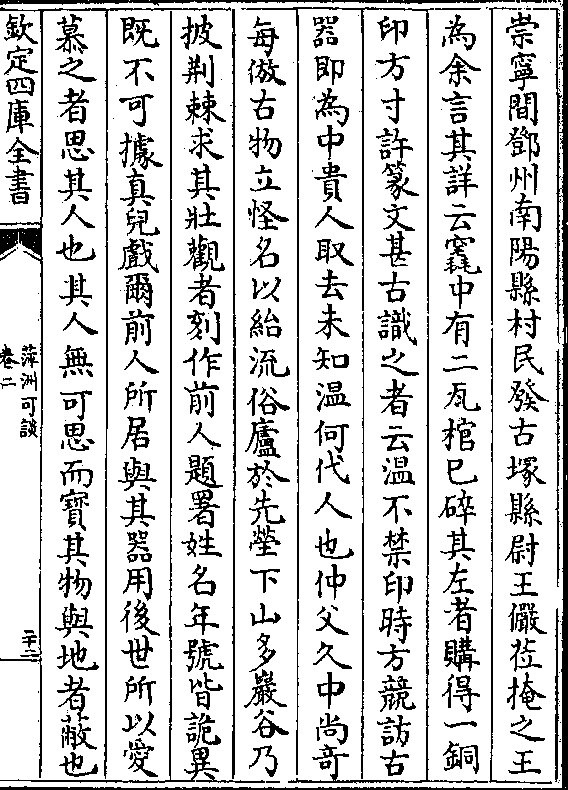 崇寧間鄧州南陽縣村民發古塚縣尉王儼莅掩之王
為余言其詳云窾中有二瓦棺已碎其左者購得一銅
印方寸許篆文甚古識之者云温不禁印時方競訪古
器即為中貴人取去未知温何代人也仲父久中尚奇
每倣古物立怪名以紿流俗廬於先塋下山多巖谷乃
披荆棘求其壯觀者刻作前人題署姓名年號皆詭異
既不可據真兒戲爾前人所居與其器用後世所以愛
慕之者思其人也其人無可思而寳其物與地者蔽也
欽定四庫全書
萍洲可談
卷二
二十二